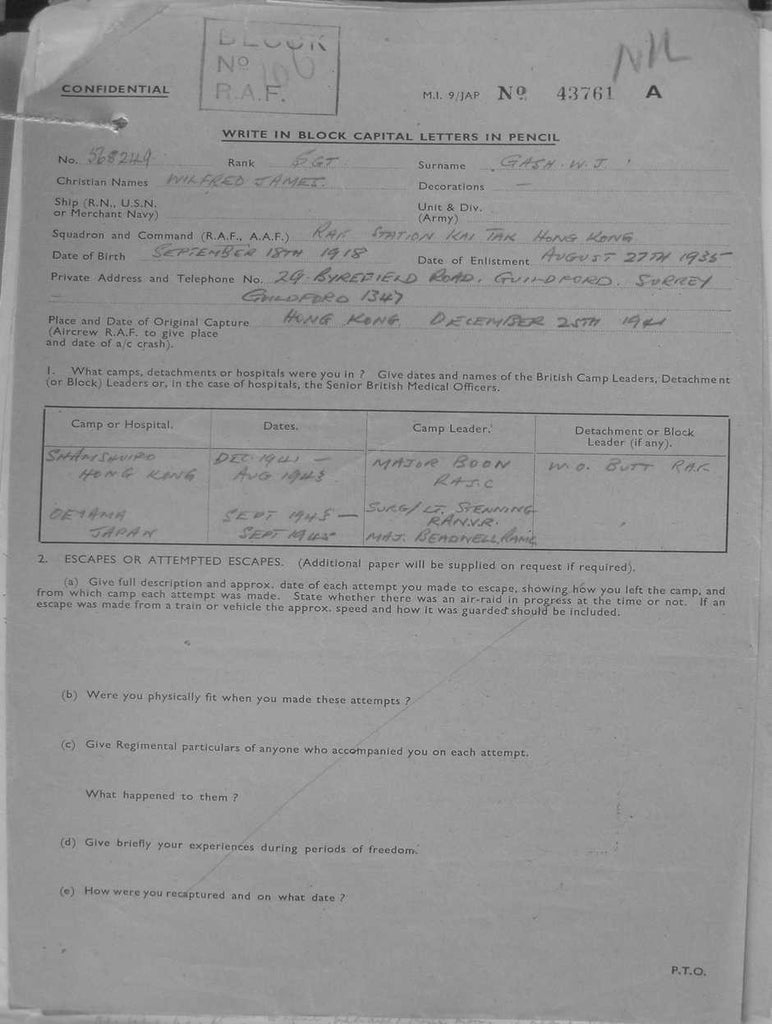 BLOCK
Nº 106
R.A.F.
NIL
CONFIDENTIAL
M.I. 9/JAP Nº 43761 A
WRITE IN BLOCK CAPITAL LETTERS IN PENCIL
No. 568249 Rank SGT Surname GASH. W. J.
Christian Names WILFRED JAMES. Decorations —
Ship (R.N., U.S.N.
or Merchant Navy)
Unit & Div.
(Army)
Squadron and Command (R.A.F., A.A.F.) RAF STATION KAI TAK HONG KONG
Date of Birth SEPTEMBER 18TH 1918 Date of Enlistment AUGUST 27TH 1935
Private Address and Telephone No. 29 BYREFIELD ROAD, GUILDFORD. SURREY
GUILDFORD 1347
Place and Date of Original Capture HONG KONG DECEMBER 25TH 1941
(Aircrew R.A.F. to give place
and date of a/c crash).
1. What camps, detachments or hospitals were you in ? Give dates and names of the British Camp Leaders, Detachment
(or Block) Leaders or, in the case of hospitals, the Senior British Medical Officers.
Camp or Hospital. Dates. Camp Leader. Detachment or Block
Leader (if any).
SHAMSHUIPO DEC. 1941 — MAJOR BOON W.O. BUTT RAF
HONG KONG AUG 1943 R.A.S.C
OEYAMA SEPT 1943 — SURG/LT. STENNING
JAPAN SEPT 1945 R.A.N.V.R.
MAJ. BEADWELL, RAMC
2. ESCAPES OR ATTEMPTED ESCAPES. (Additional paper will be supplied on request if required).
(a) Give full description and approx. date of each attempt you made to escape, showing how you left the camp, and
from which camp each attempt was made. State whether there was an air-raid in progress at the time or not. If an
escape was made from a train or vehicle the approx. speed and how it was guarded should be included.
(b) Were you physically fit when you made these attempts ?
(c) Give Regimental particulars of anyone who accompanied you on each attempt.
What happened to them ?
(d) Give briefly your experiences during periods of freedom.
(e) How were you recaptured and on what date ?
P.T.O.